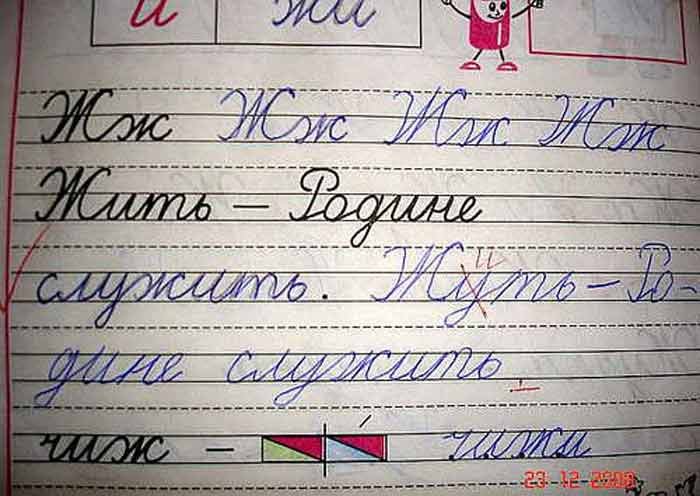 и жи
Жж Жж Жж Жж
Жить – Родине
служить. Жуть – Ро-
и
дине служить.
чиж – чижи